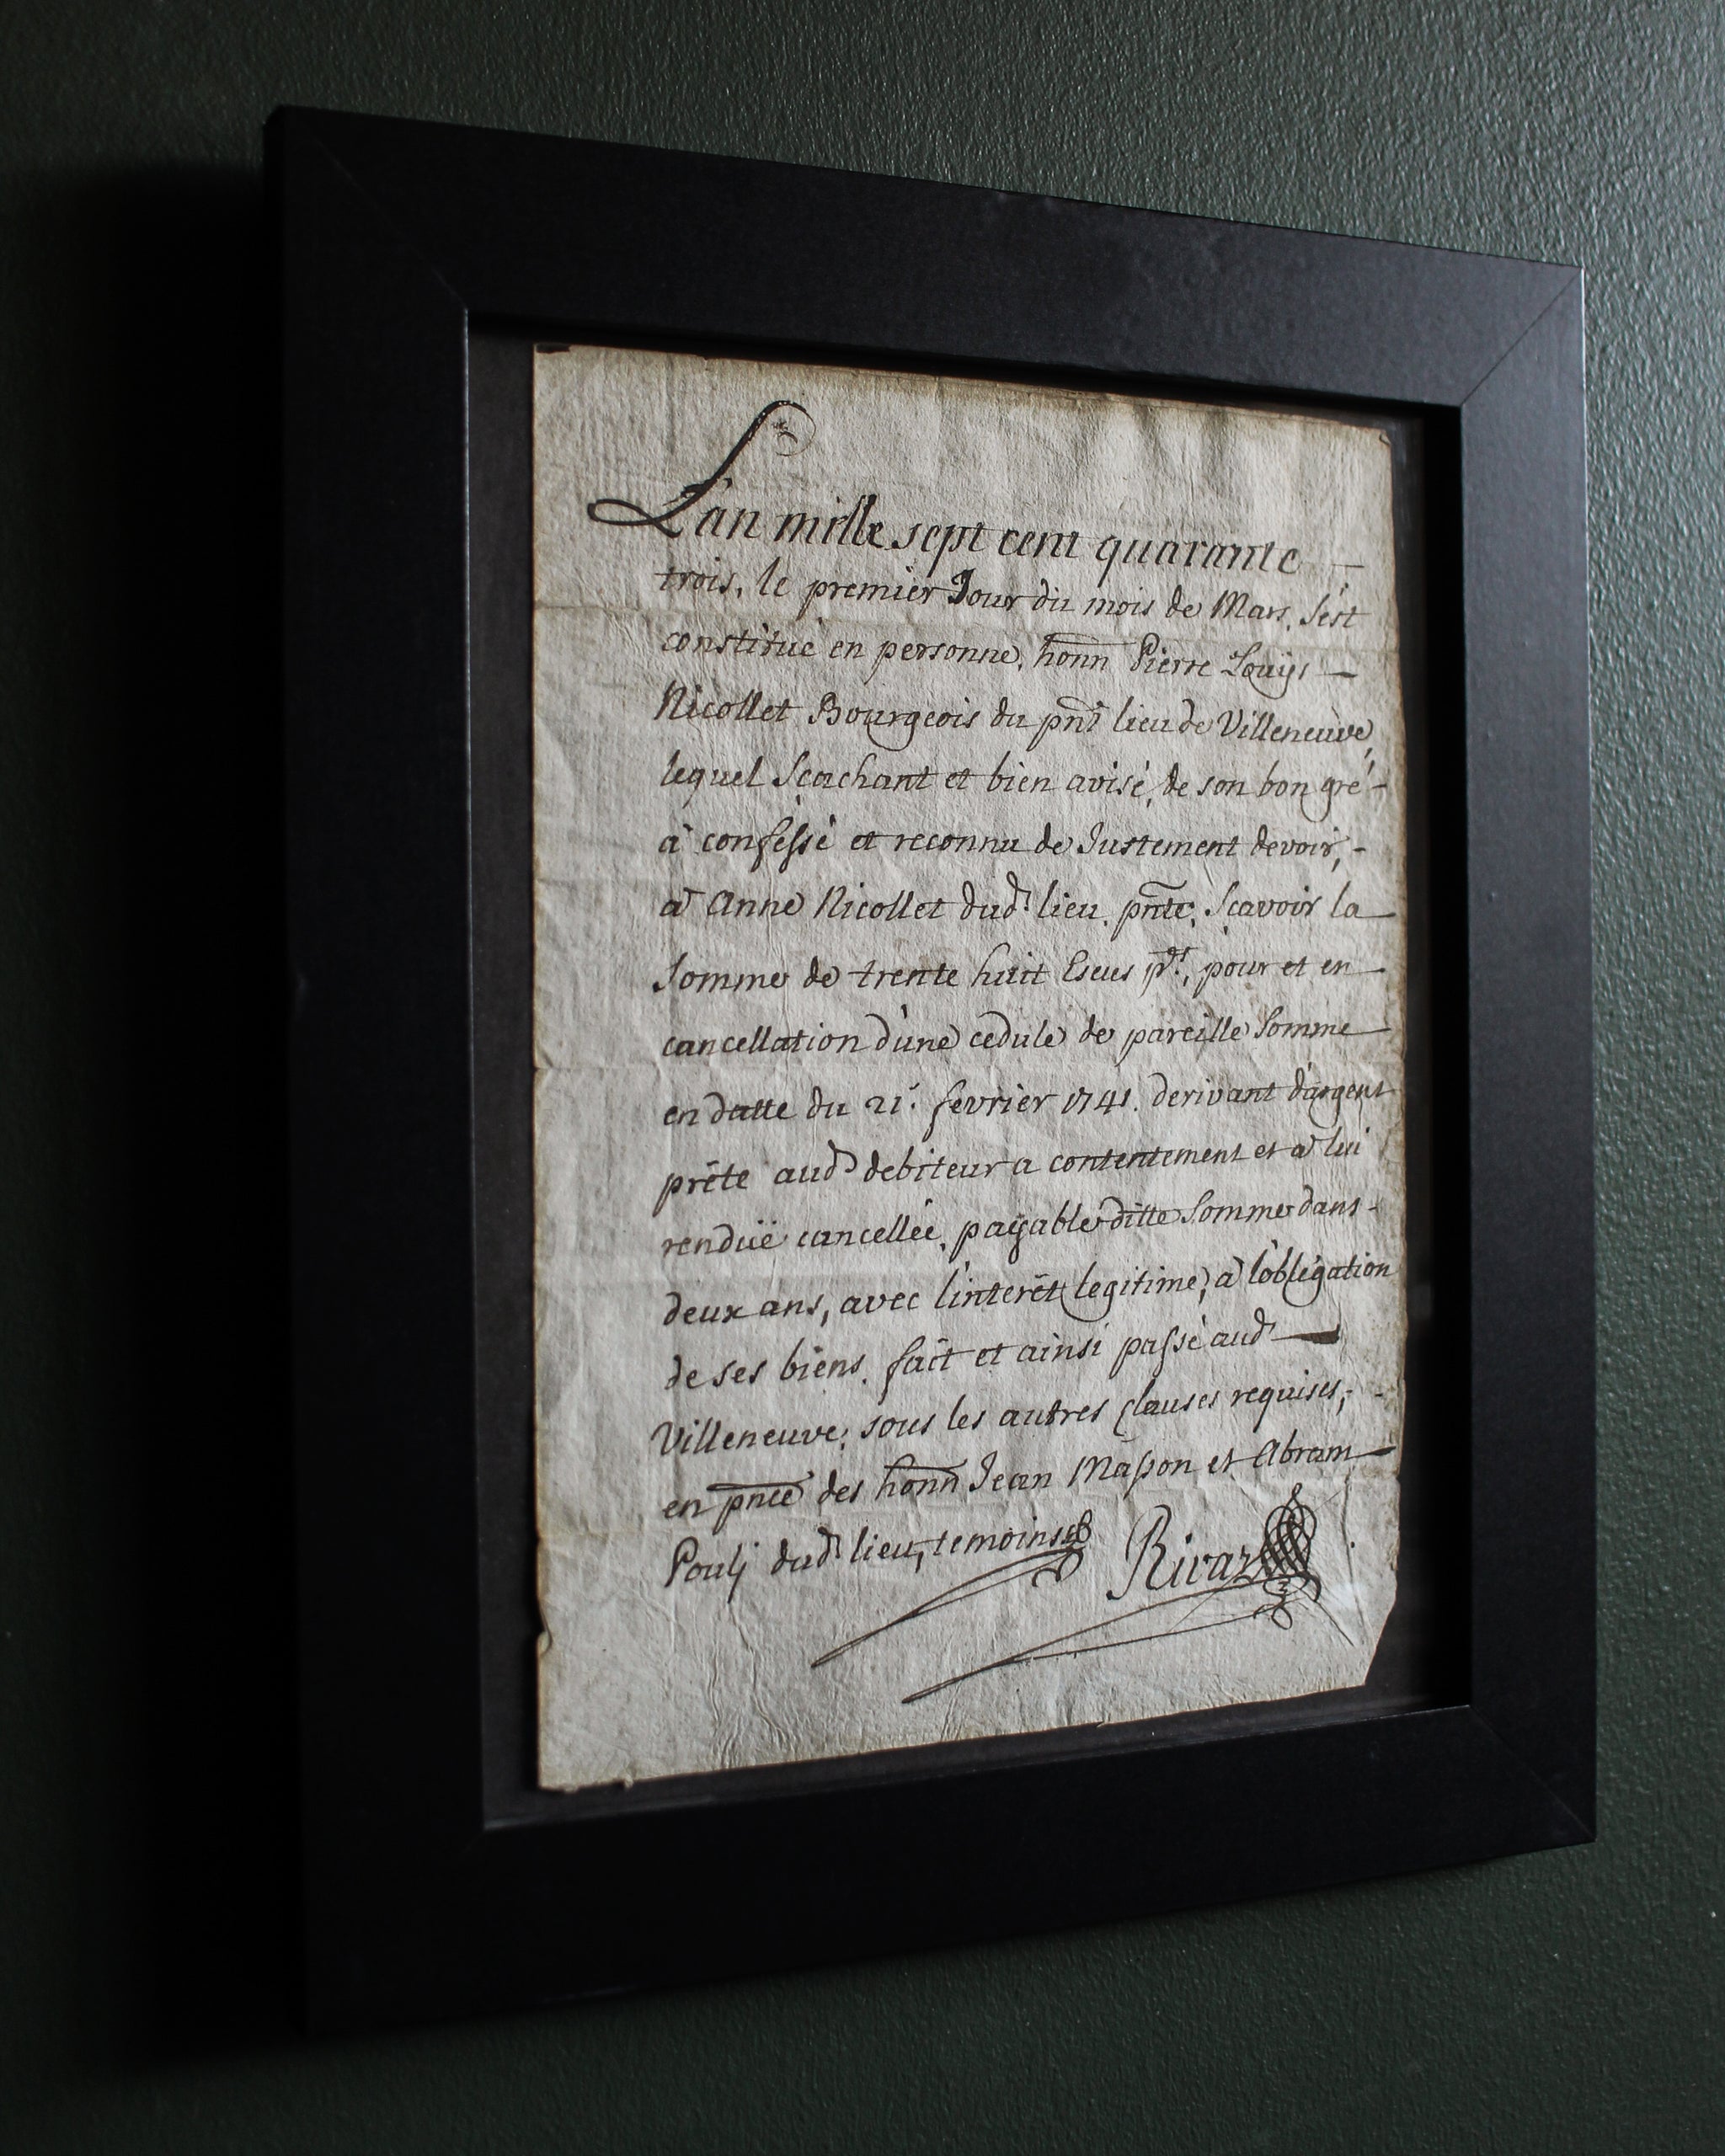 L'an mille sept cent quarante —
trois, le premier Jour du mois de Mars, s'est
constitué en personne, honn Pierre Louÿs —
Nicollet Bourgeois du pnt lieu de Villeneuve,
lequel Scachant et bien avisé, de son bon gré -
à confessé et reconnu de Justement devoir, -
à Anne Nicollet dud.t lieu, pnte, Scavoir la
Somme de trente huit Escus pts, pour et en
cancellation d'une cedule de pareille Somme
en datte du 21.e fevrier 1741. derivant d'argent
prêté aud debiteur a contentement et à lui
renduë cancellée, paÿable ditte Somme dans -
deux ans, avec l'interêt legitime, à l'obligation
de ses biens. fait et ainsi passé aud —
Villeneuve, sous les autres clauses requises, -
en pnce des honn Jean Masson et Abram
Poulj dud lieu, temoins Rivaz